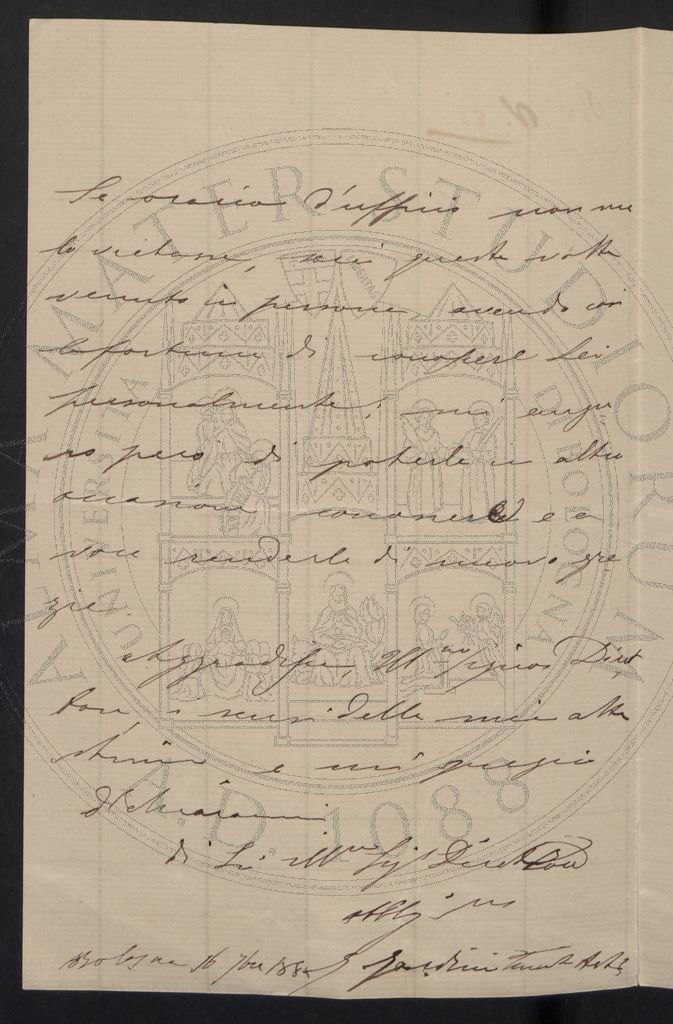 Se orario d'ufficio non me
lo vietasse, sarei questa volta
venuto in persona, avendo così
la fortuna di conoscere Lei
personalmente; mi augu
ro però di poterla in altra
occasione conoscere e a
voce renderle di nuovo gra
zie.
Aggradisca, Ill.mo Signor Diret
tore, i sensi della mia alta
stima e mi pregio
dichiararmi
di Lei Ill.mo Sig. Direttore
Obblig.mo
Bologna 16 7bre
ALMA MATER STUDIORUM
A.D. 1088